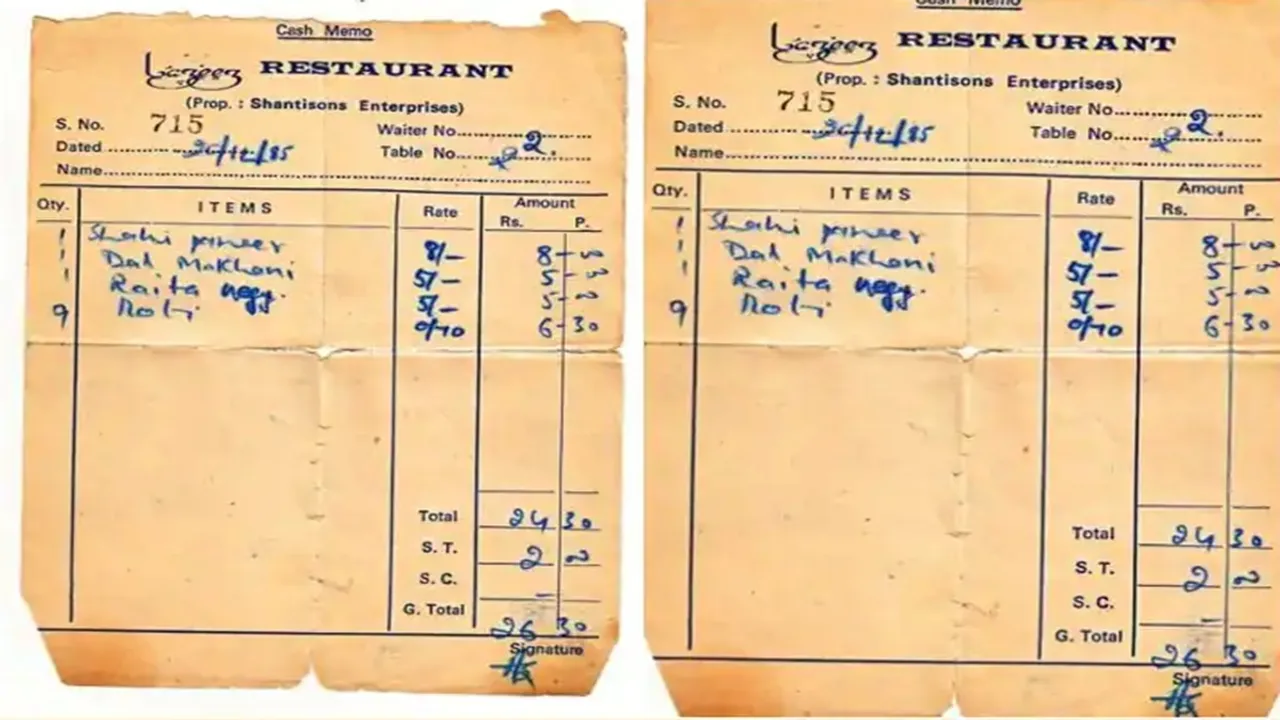 Cash Memo
Lazeez RESTAURANT
(Prop. : Shantisons Enterprises)
S. No. 715 Waiter No. 2.
Dated 20/12/85 Table No.
Name
Qty. ITEMS Rate Amount
Rs. P.
1 Shahi paneer 8/- 8-00
1 Dal Makhani 5/- 5-00
1 Raita vegg. 5/- 5-00
9 Roti 0/70 6-30
Total 24 30
S. T. 2 00
S. C. -
G. Total 26 30
Signature
Cash Memo
Lazeez RESTAURANT
(Prop. : Shantisons Enterprises)
S. No. 715 Waiter No. 2.
Dated 20/12/85 Table No.
Name
Qty. ITEMS Rate Amount
Rs. P.
1 Shahi paneer 8/- 8-00
1 Dal Makhani 5/- 5-00
1 Raita vegg. 5/- 5-00
9 Roti 0/70 6-30
Total 24 30
S. T. 2 00
S. C. -
G. Total 26 30
Signature